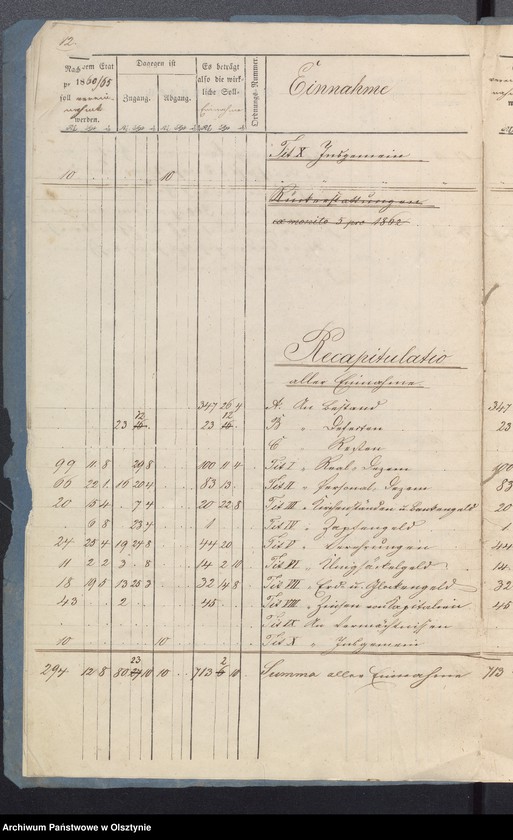 12.
Nach dem Etat
pr 1860/65
soll
werden.
Dagegen ist
Zugang.
Abgang.
Es beträgt
also die wirk-
liche Soll-
Einnahme
Ordnungs-Nummer.
Einnahme
Tit X Insgemein
10 . . 10
ex monito 5 pro 1862
Recapitulatio
aller Einnahme.
347 26 4 A. An Bestand
23 12 23 12 B " Defecten
C " Resten
99 11 8 . 29 8 100 11 4 Tit I " Real-Dezem
66 22 1 16 20 4 83 13 . Tit II " Personal-Dezem
20 15 4 . 7 4 20 22 8 Tit III "
. 6 8 . 23 4 1 . . Tit IV " Zapfengeld
24 25 4 19 24 8 44 20 . Tit V "
11 2 2 3 . 8 14 2 10 Tit VI " Umgsäckelgeld
18 19 5 13 25 3 32 14 8 Tit VII " Erd- u. Glockengeld
43 . . 2 . . 45 . . Tit VIII " Zinsen von Kapitalien
Tit IX An Vermächtnissen
10 . . 10 . . Tit X " Insgemein
294 12 8 80 23 10 10 . . 713 2 10 Summa aller Einnahme 713
347
23
100
83
20
1
44
14
32
45
Archiwum Państwowe w Olsztynie